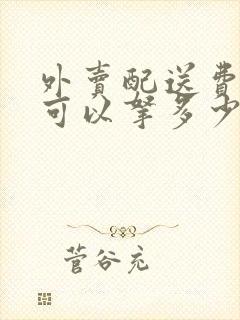 外賣配送費
可以拏多少
菅谷充